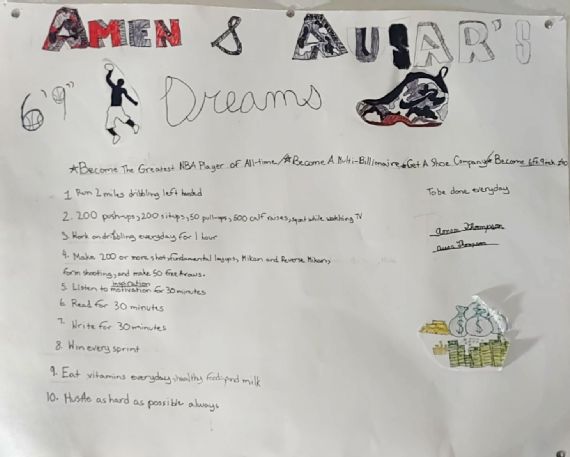 AMEN & AUSAR'S
6'9" Dreams
*Become The Greatest NBA Player of All-time/*Become A Multi-Billionaire*Get A Shoe Company*Become 6ft 9inch
1. Run 2 miles dribbling left handed
To be done everyday
2. 200 push-ups, 200 situps, 50 pull-ups, 500 calf raises, squat while watching TV
3. Work on dribbling everyday for 1 hour
Amen Thompson
4. Make 200 or more shot fundamental layups, Mikan and Reverse Mikan,
form shooting, and make 50 free throws.
inspiration
5. Listen to motivation for 30 minutes
6. Read for 30 minutes
7. Write for 30 minutes
8. Win every sprint
9. Eat vitamins everyday, healthy foods, and milk
10. Hustle as hard as possible always